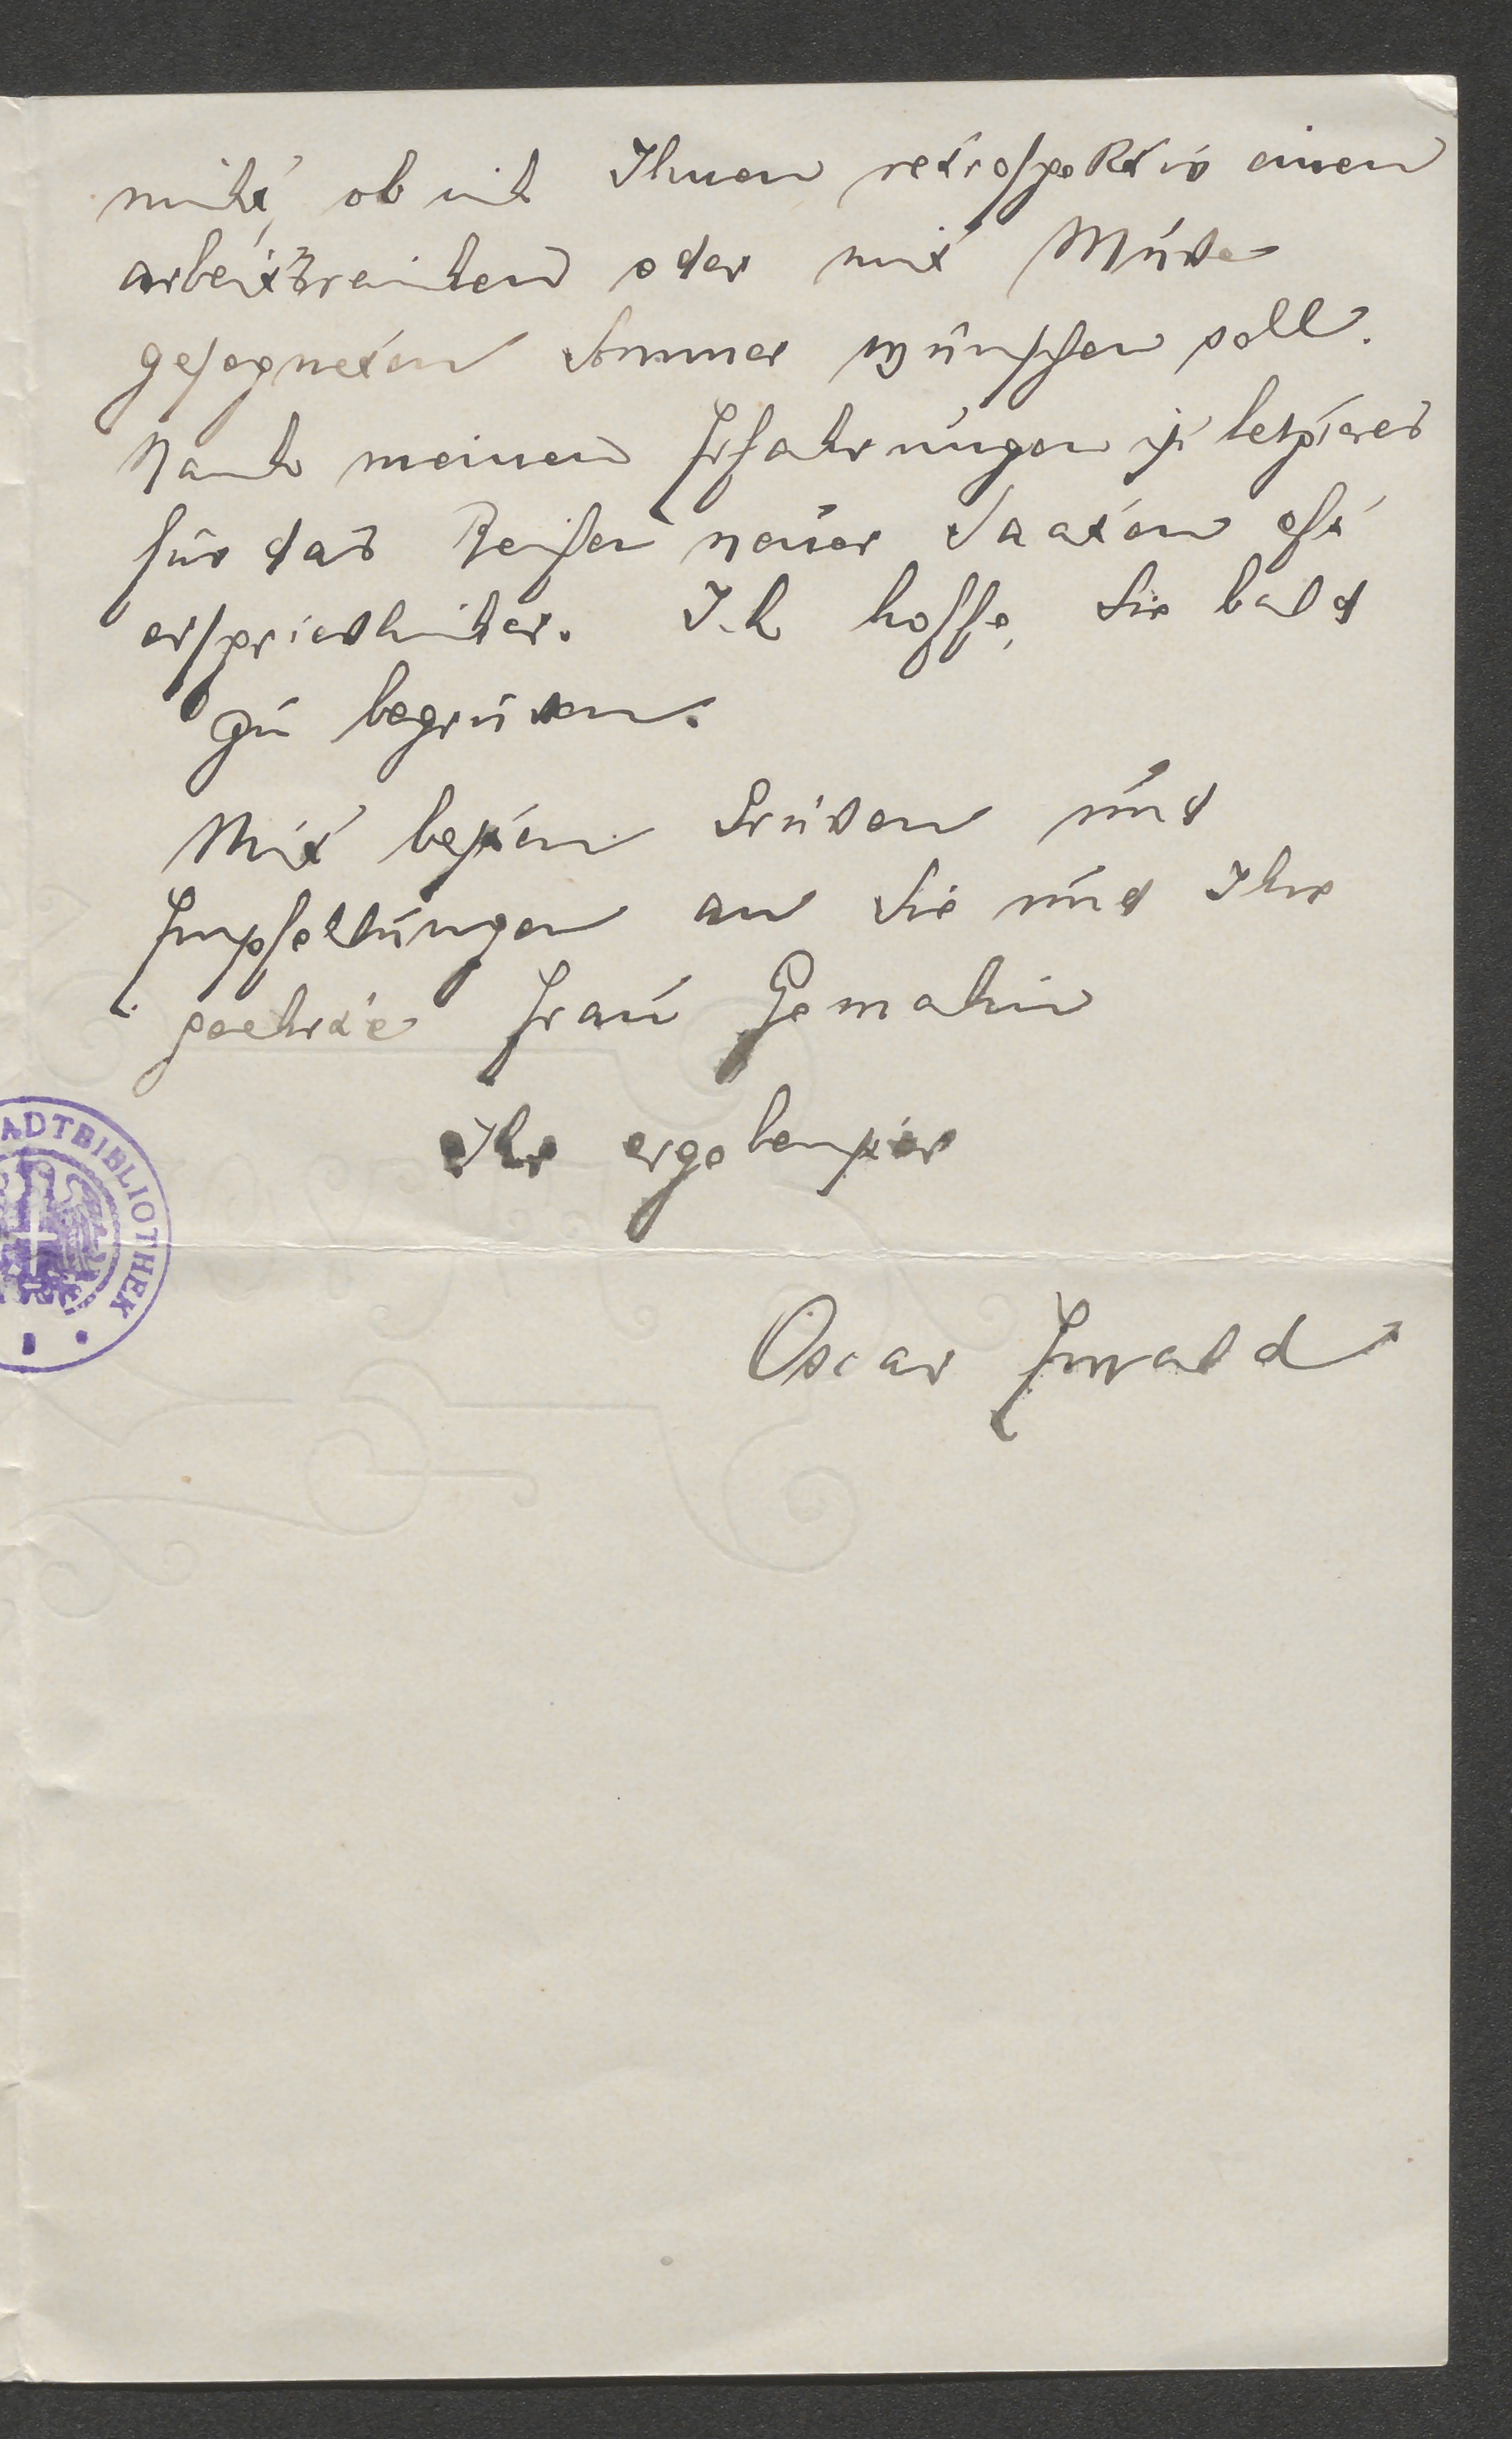 nicht, ob ich Ihnen retrospektiv einen
arbeitsreichen oder mit Muße
gesegneten Sommer wünschen soll.
Nach meinen Erfahrungen ist letzteres
für das Reifen neuer Saaten oft
ersprießlicher. Ich hoffe, Sie bald
zu begrüßen.
Mit besten Grüßen und
Empfehlungen an Sie und Ihre
geehrte Frau Gemahlin
Ihr ergebenster
ADTBIBLIOTHEK
Oscar Ewald